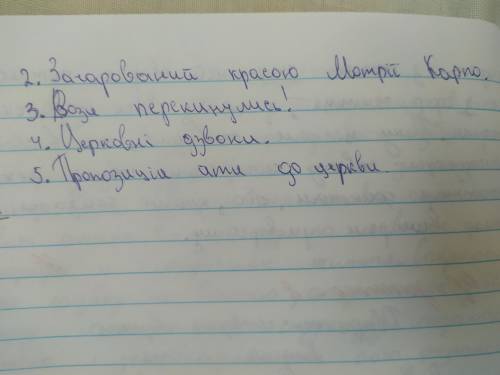 2. Зачарований красою Мотрії Карпо.
3. Вози перекинулись!
4. Церковні дзвони.
5. Пропозиція іти до церкви.